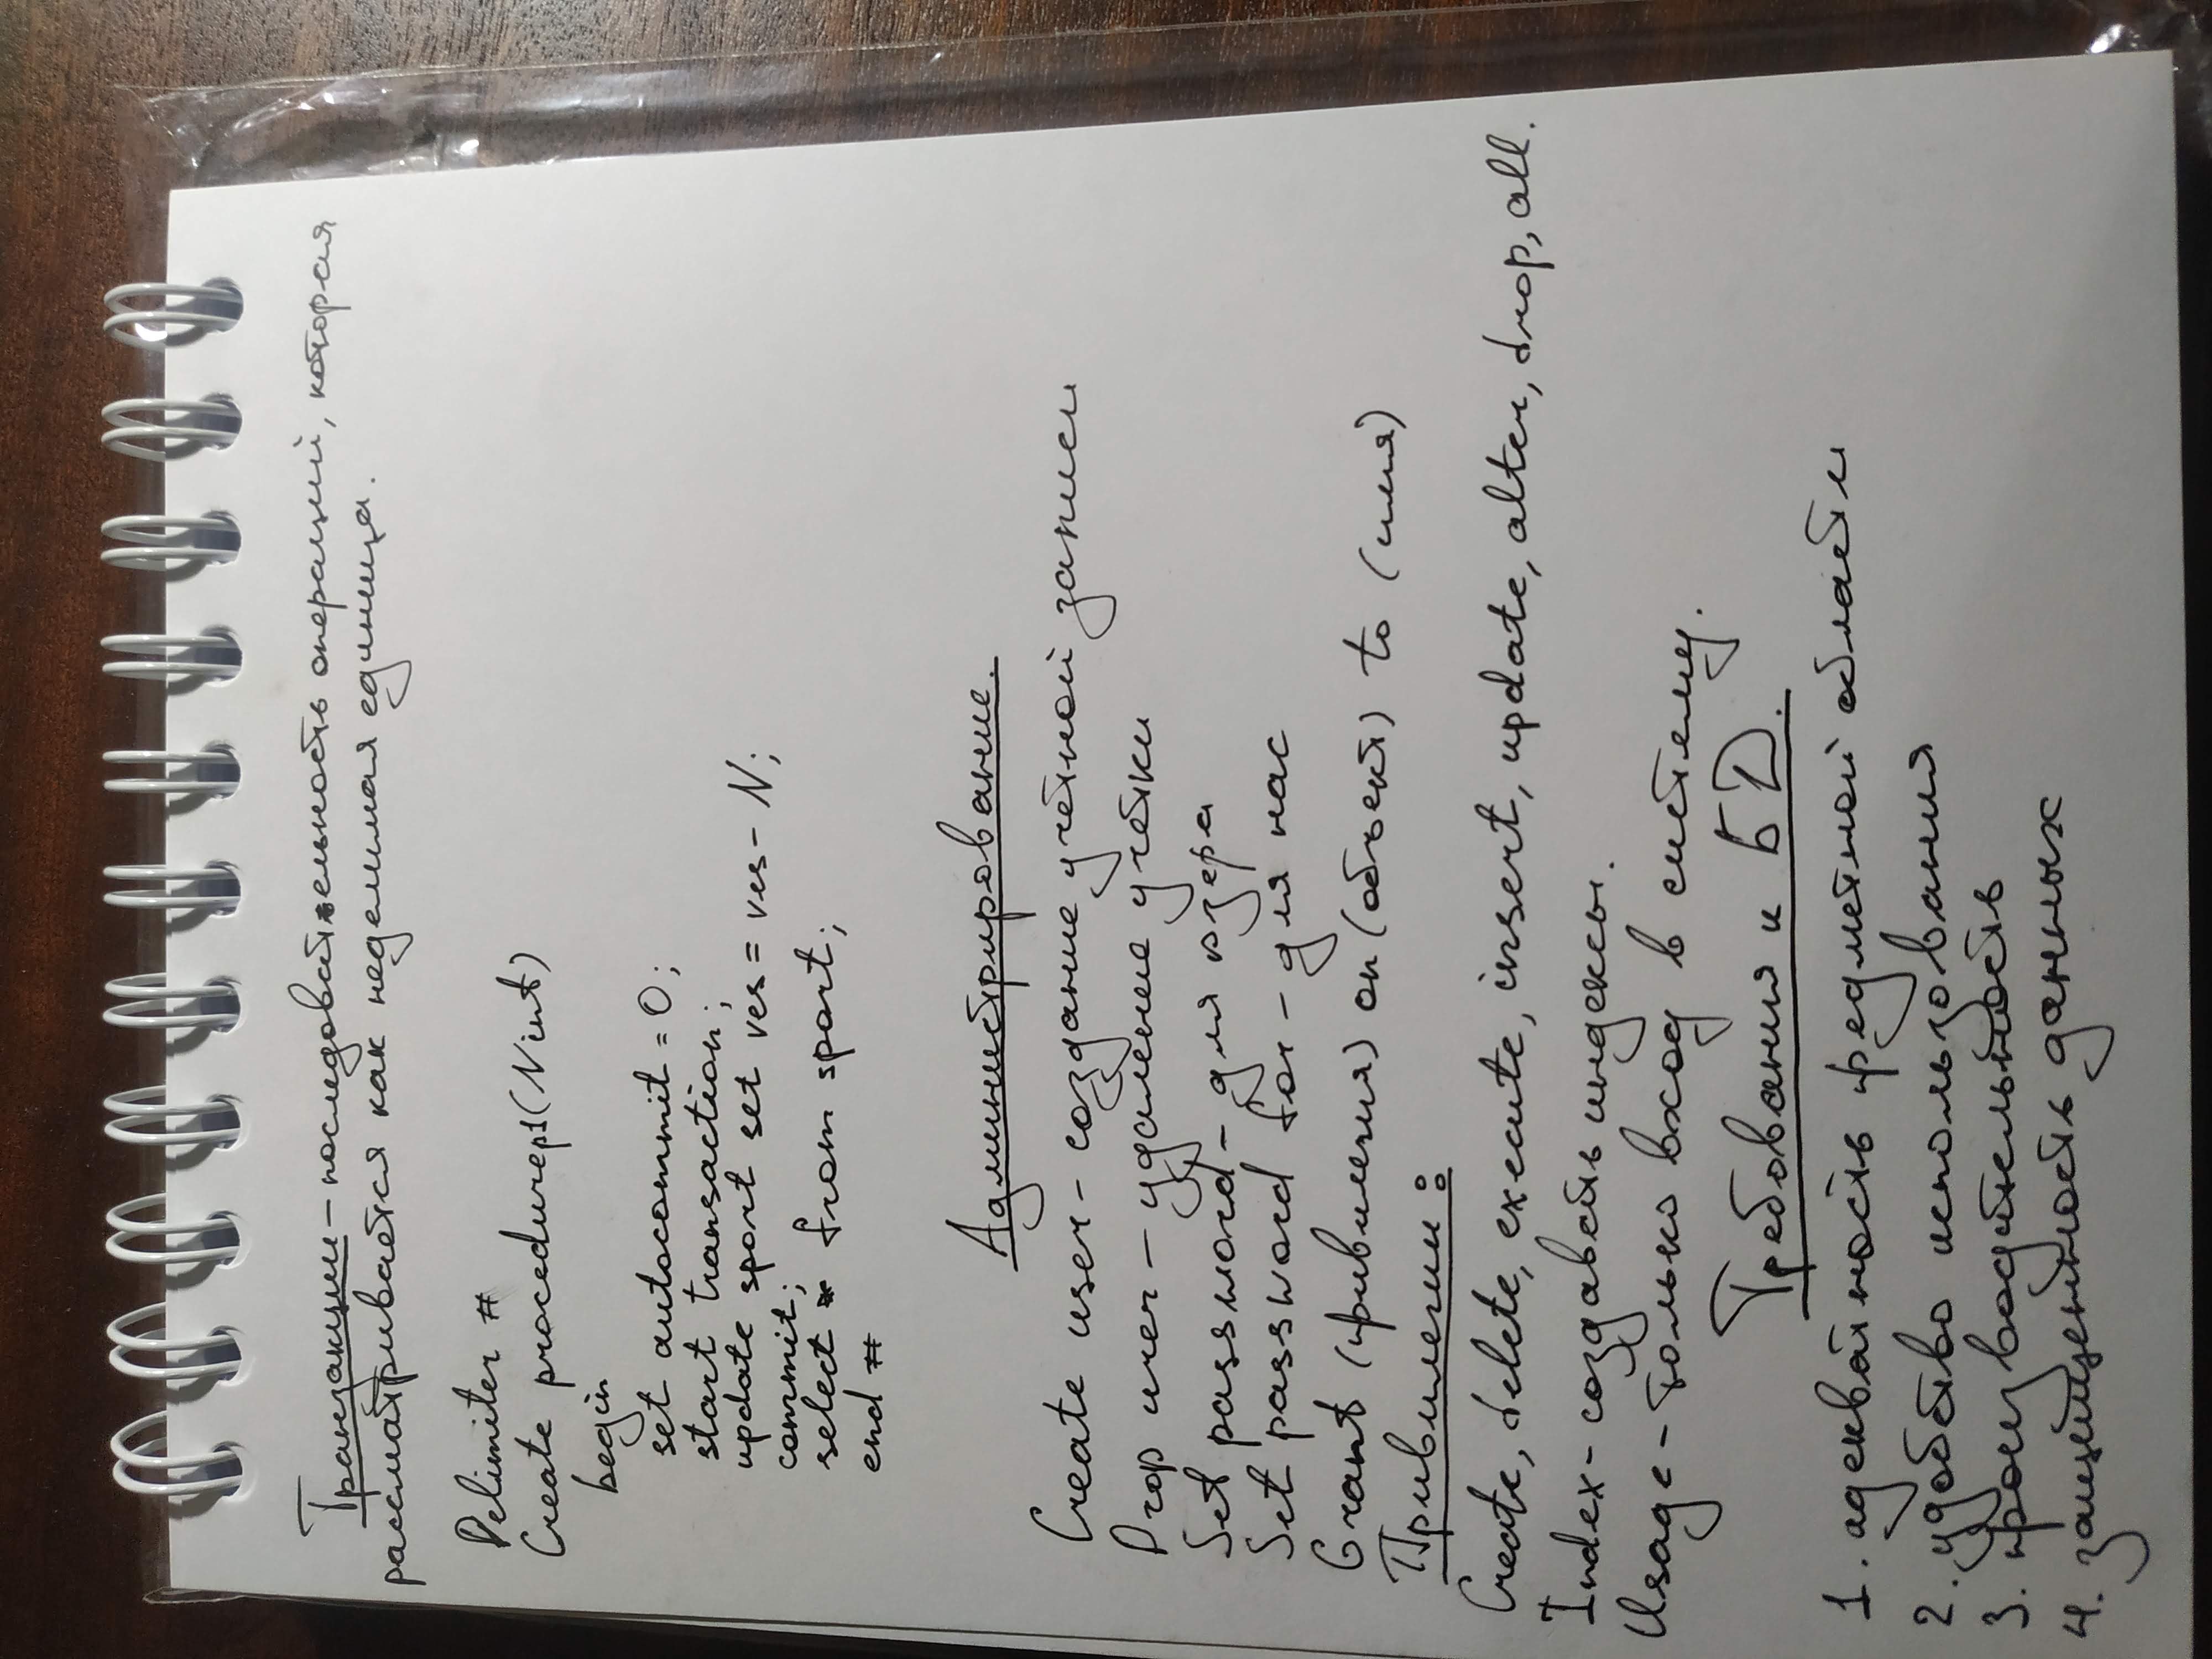 Транзакции - последовательность операций, которая
рассматривается как неделимая единица.
Delimiter #
Create procedure p1(N int)
begin
set autocommit = 0;
start transaction;
update sport set ves = ves - N;
commit;
select * from sport;
end #
Администрирование.
Create user - создание учётной записи
Drop user - удаление учётки
Set password - для юзера
Set password for - для нас
Grant (привилегия) on (объект) to (имя)
Привилегии:
Create, delete, execute, insert, update, alter, drop, all.
Index - создавать индексы.
Usage - только вход в систему.
Требования к БД.
1. адекватность предметной области
2. удобство использования
3. производительность
4. защищенность данных